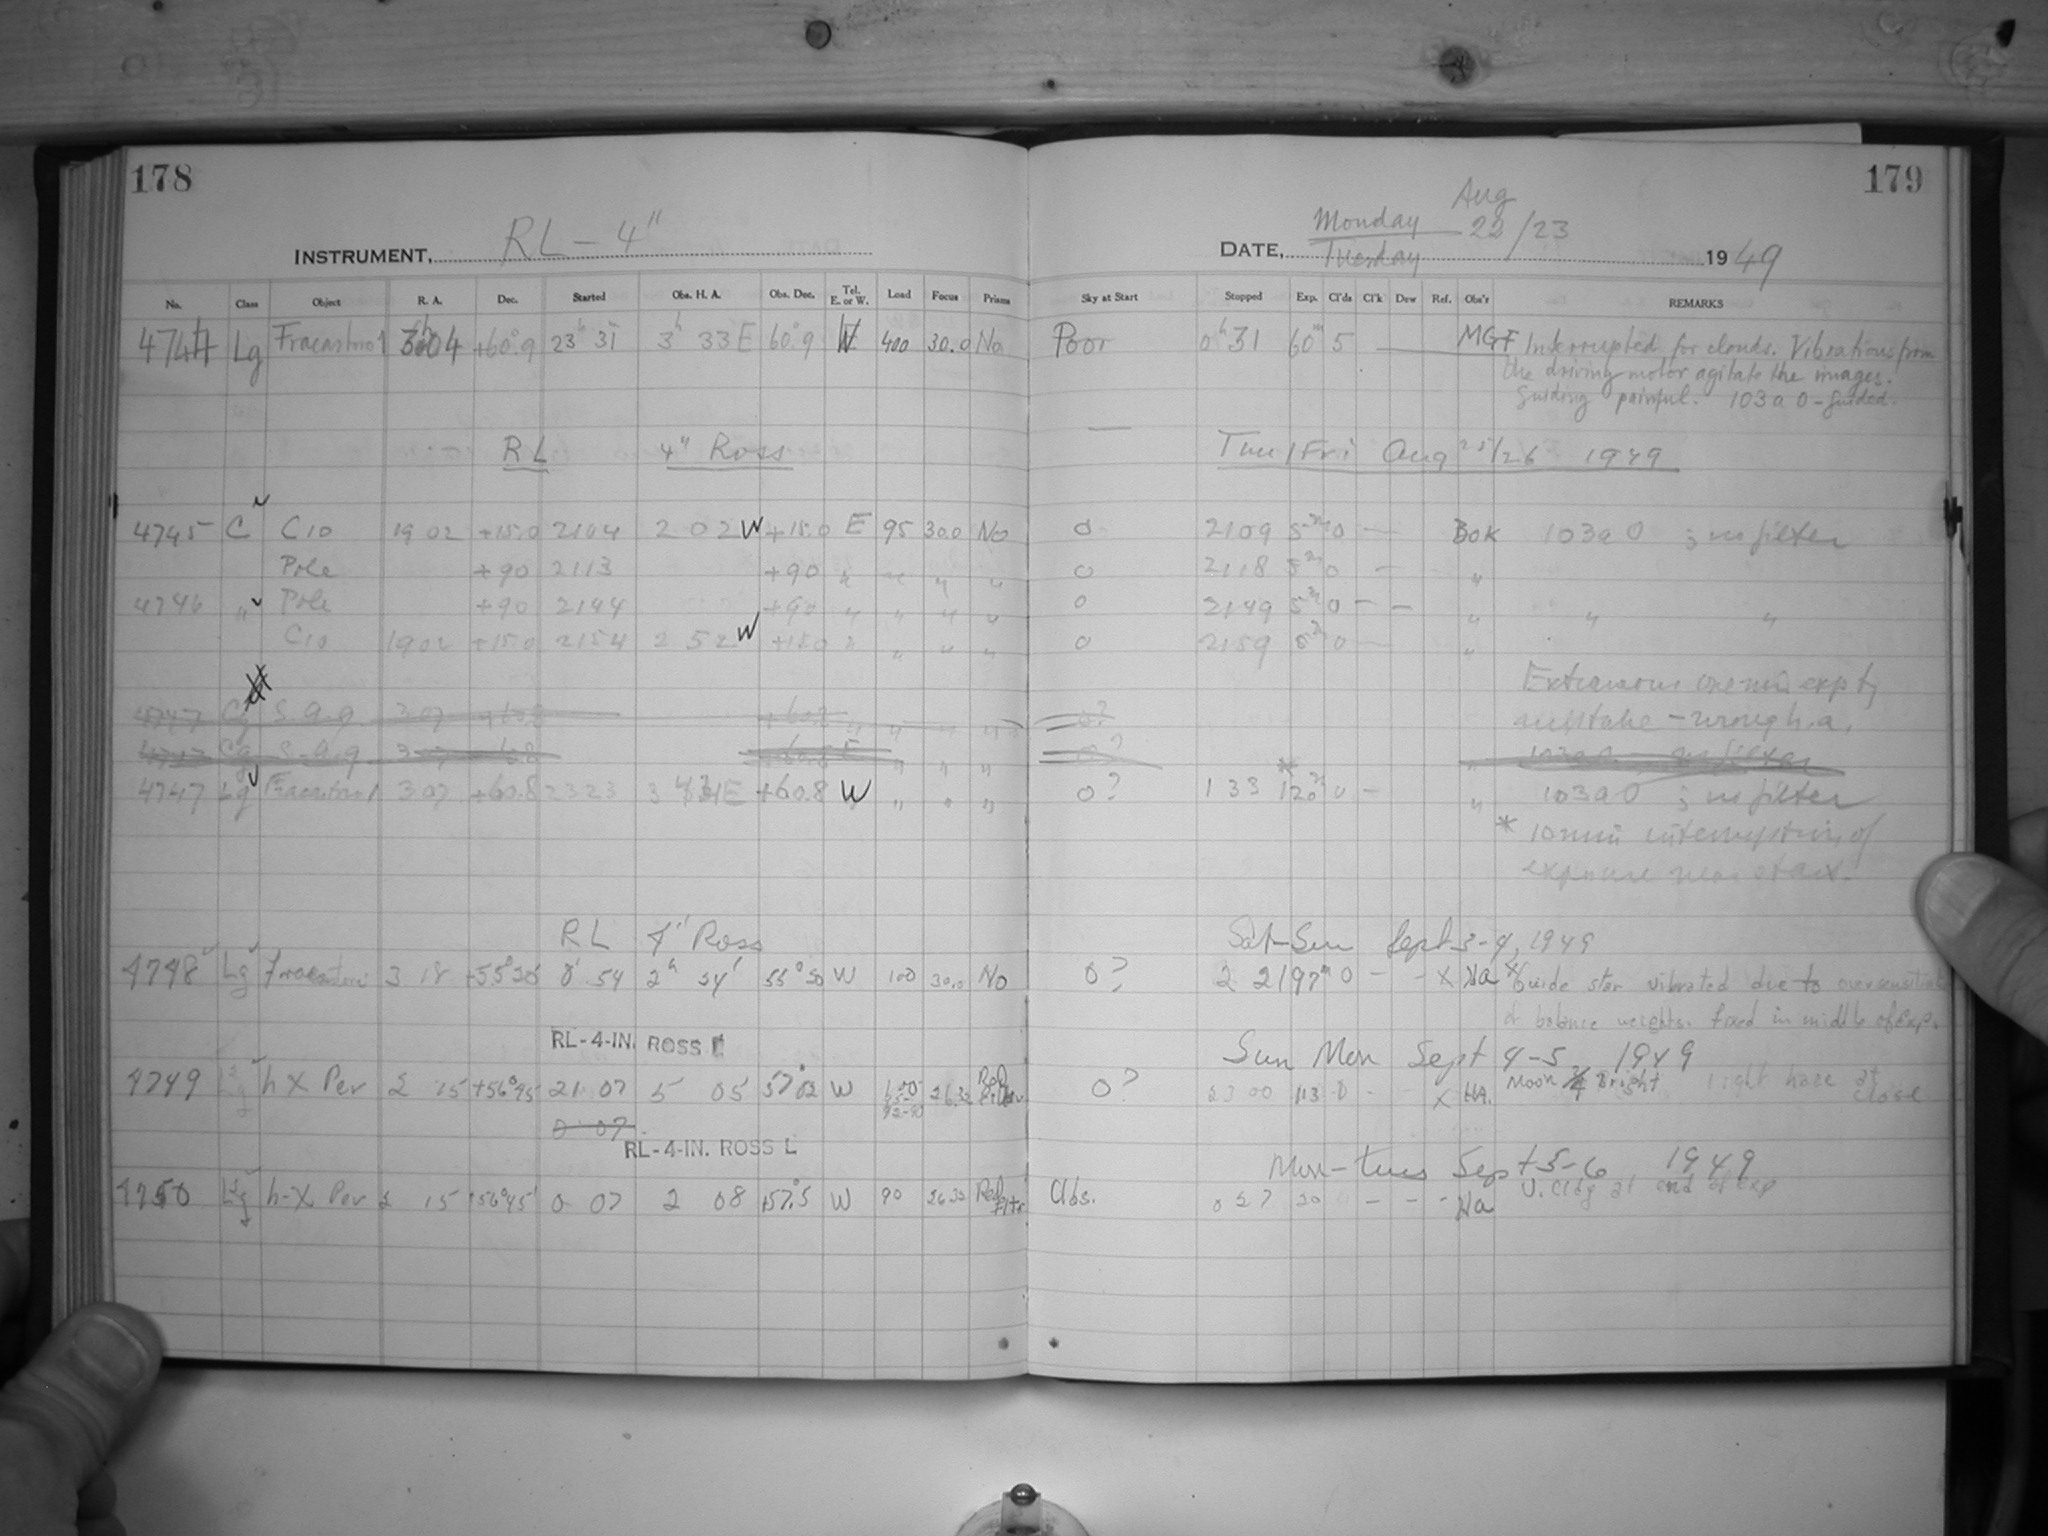 178
179
INSTRUMENT, RL - 4"
DATE, Monday Aug 22/23 1949
Tuesday
No. Class Object R. A. Dec. Started Obs. H. A. Obs. Dec. Tel. E. or W. Load Focus Prisms Sky at Start Stopped Exp. Cl'ds Cl'k Dew Ref. Obs'r REMARKS
4744 Lg Fracastoro 1 3h04 +60°.9 23h 31 3h 33 E 60°.9 W 400 30.0 No Poor 0h 31 60m 5 — MGF Interrupted for clouds. Vibrations from
the driving motor agitate the images.
Guiding painful. 103a O - guided.
RL 4" Ross Thu/Fri Aug 25/26 1949
4745 C C10 19 02 +15.0 2104 2 02 W +15.0 E 95 30.0 No 0 2109 5m 0 — BOK 103a O ; no filter
Pole +90 2113 +90 " " " " 0 2118 5m 0 — "
4746 " Pole +90 2144 +90 " " " " 0 2149 5m 0 — — " " "
C10 1902 +15.0 2154 2 52 W +15.0 " " " " 0 2159 5m 0 — "
Extraneous one min exp by
mistake - wrong h.a.
4747 Cg S.a.g 3 07 +60.8
4747 Cg S.a.g 3 07 +60.8 E 103a O no filter
4747 Lg Fracastoro 1 3 07 +60.8 2323 3 E +60.8 W " " " 0? 1 33 *120m 0 - " 103a O ; no filter
* 10 min interruption of
exposure near start.
RL 4" Ross Sat-Sun Sept 3-4, 1949
4748 Lg Fracastoro 3 18 +55°20' 0 54 2h 34' 55°20 W 100 30.0 No 0? 2 21 97m 0 - - X Ha Guide star vibrated due to oversensitivity
of balance weights. fixed in middle of exp.
RL-4-IN. ROSS L Sun Mon Sept 4-5 1949
4749 Lg h X Per 2 15 +56°45 21 07 5 05 57°02 W 26.32 Red Filter 0? 23 00 113 0 - - X HA. Moon 3/4 Bright light haze at close
0 07
RL-4-IN. ROSS L Mon-Tues Sept 5-6 1949
4750 Lg h-X Per 2 15 +56°45' 0 07 2 08 +57.5 W 90 26.32 Red Fltr Clds. 0 27 20 - - - Ha V. Cldy at end of exp